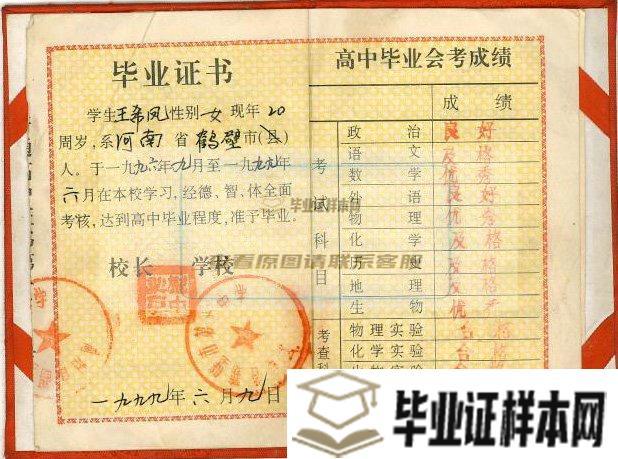 毕业证书
学生王希凤性别女现年20
周岁,系河南省鹤壁市(县)
人。于一九九六年九月至一九九九年
六月在本校学习,经德、智、体全面
考核,达到高中毕业程度,准予毕业。
校长 学校
一九九九年六月九日
高中毕业会考成绩
成 绩
考试科目
政 治 良 好
语 文 及 格
数 学 优 秀
外 语 良 好
物 理 优 秀
化 学 及 格
历 史 及 格
地 理 及 格
生 物 优
考查科
物理实验 合 格
化学实验 合 格
毕业样本网
看原图请联系客服
毕业证样本网